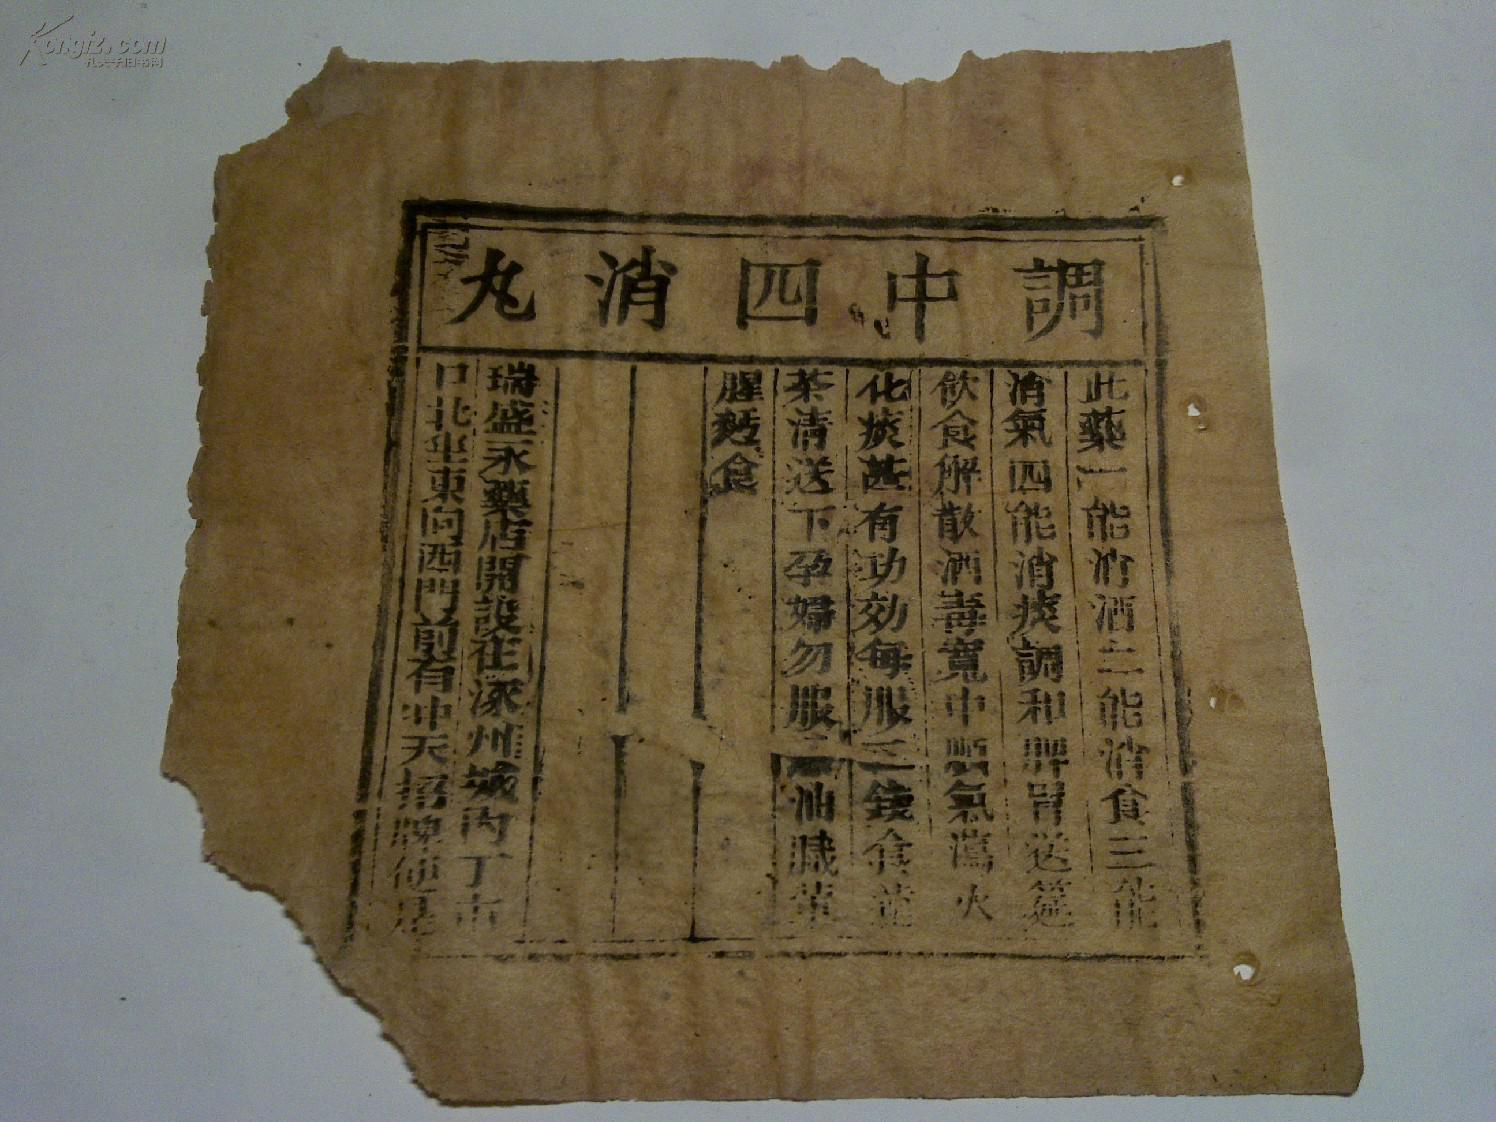 Kongfz.com
孔夫子旧书网
調中四消丸
此藥一能消酒二能消食三能
消氣四能消痰調和脾胃送
飲食解散酒毒寬中順氣瀉火
化痰甚有功効每服三錢食遠
茶清送下孕婦勿服忌油膩葷
腥麪食
瑞盛永藥店開設在涿州城内丁市
口北坐東向西門前有冲天招牌便是